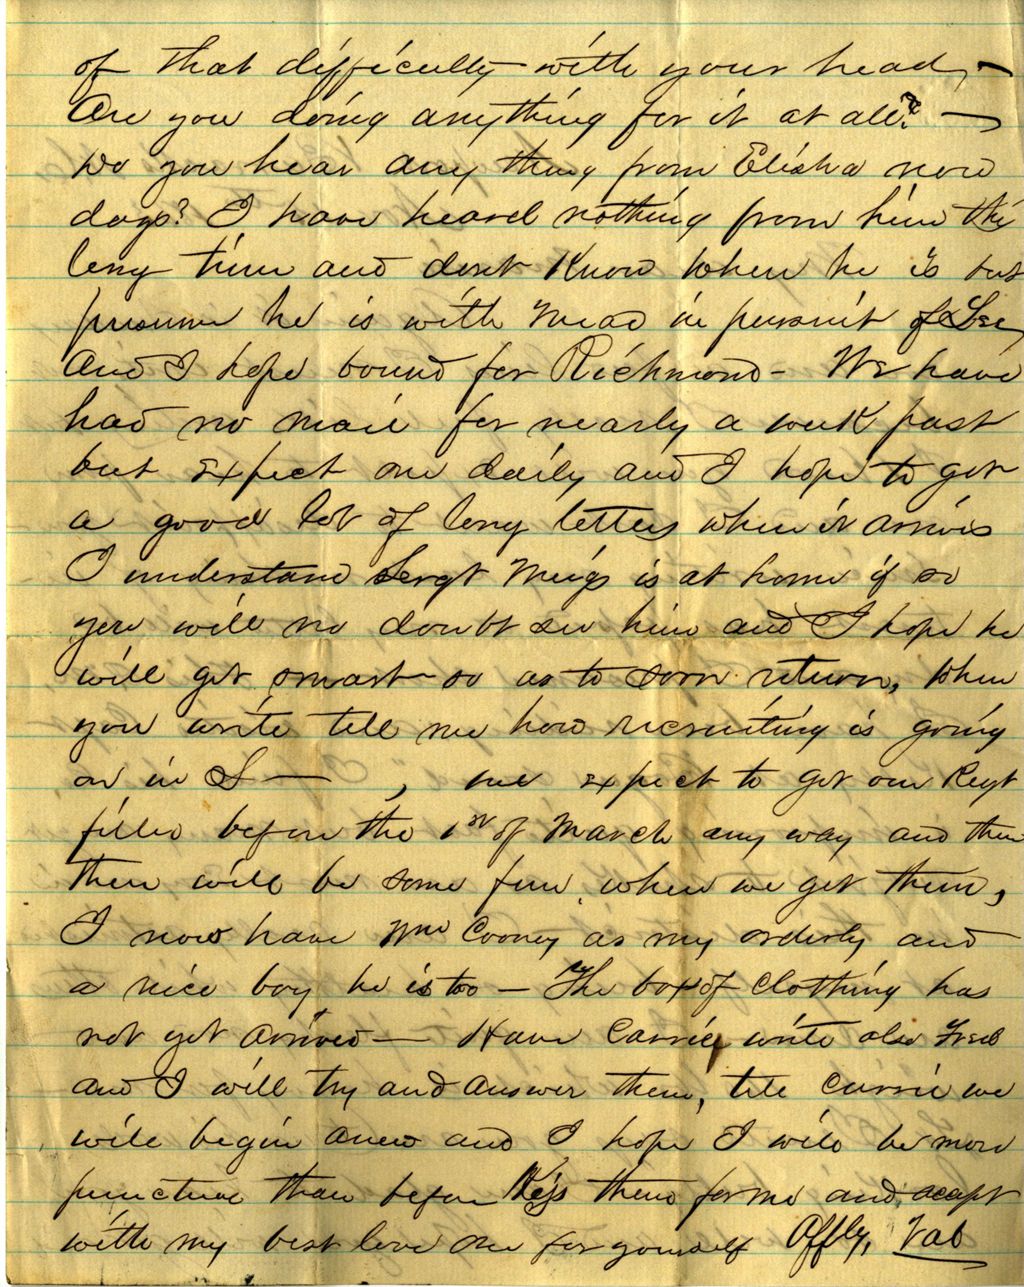 of that difficulty with your head,
Are you doing anything for it at all? —
Do you hear any thing from Elisha now
days? I have heard nothing from him this
long time and dont know where he is but
presume he is with Mead in pursuit of Lee
and I hope bound for Richmond - We have
had no mail for nearly a week past
but expect one daily and I hope to get
a good lot of long letters when it arrives
I understand Sergt Meigs is at home if so
you will no doubt see him and I hope he
will get smart so as to soon return, when
you write tell me how recruiting is going
on in S — , we expect to get our Regt
filled before the 1st of March any way and then
there will be some fun when we get them,
I now have Wm Cooney as my orderly and
a nice boy he is too — The box of clothing has
not yet arrived — Have Carrie write also Fred
and I will try and answer them, tell Carrie we
will begin anew and I hope I will be more
punctual than before Kiss them for me and accept
with my best love one for yourself Affly,